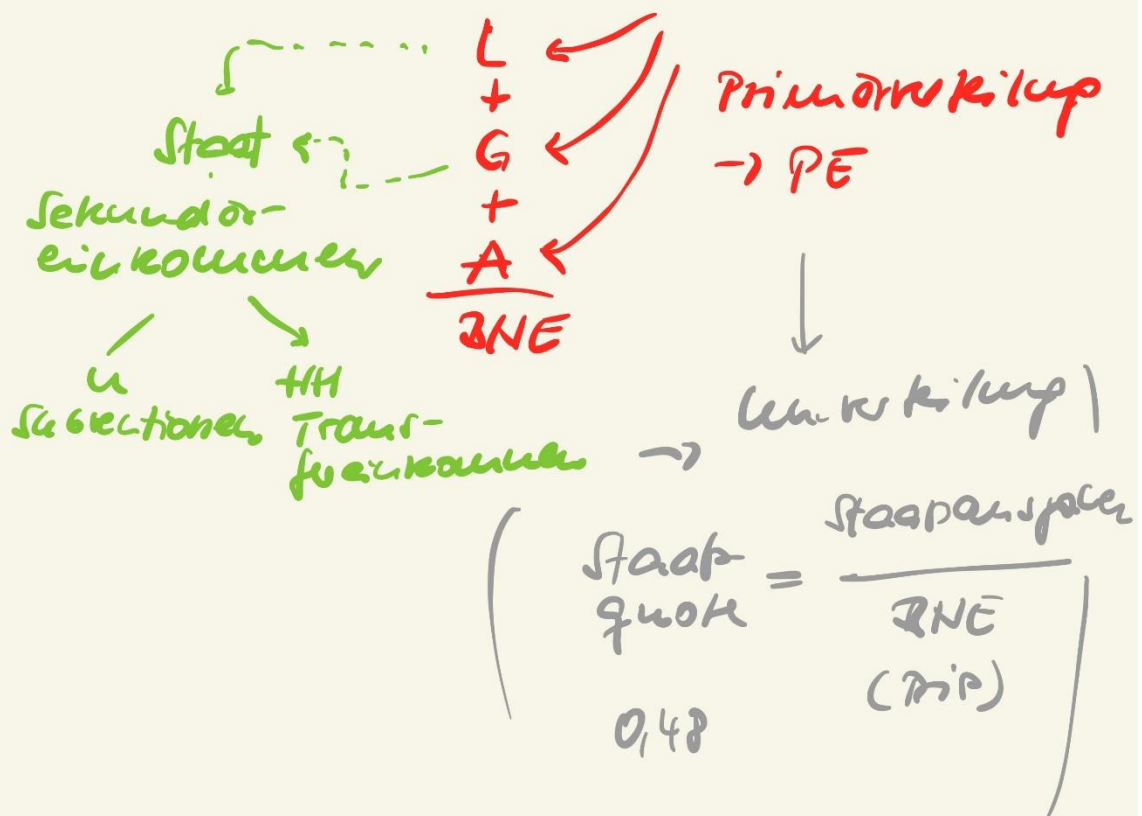 L
+
G
+
A
BNE
Primärverteilung
→ PE
Staat
Sekundär-
einkommen
U
Subventionen
HH
Trans-
fereinkommen
→ Umverteilung
(
Staats-
quote
=
Staatsausgaben
BNE
(BIP)
0,48
)